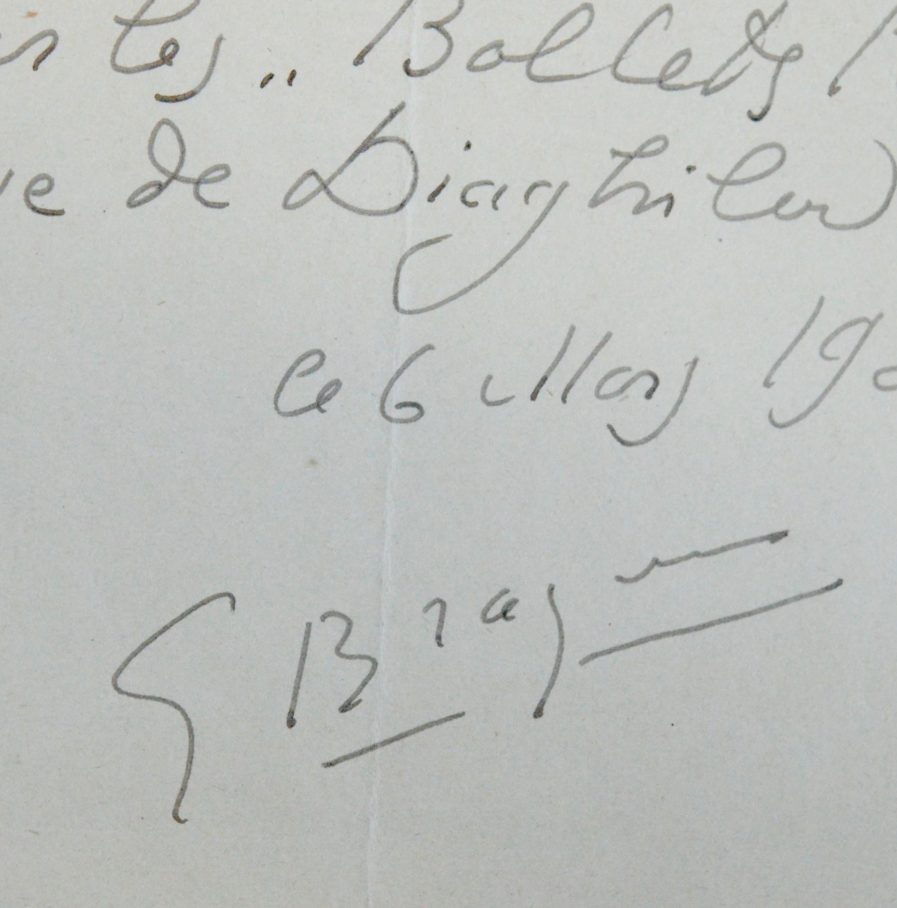 les „ Ballets
de Diaghilew
le 6 Mars 19
G Braque